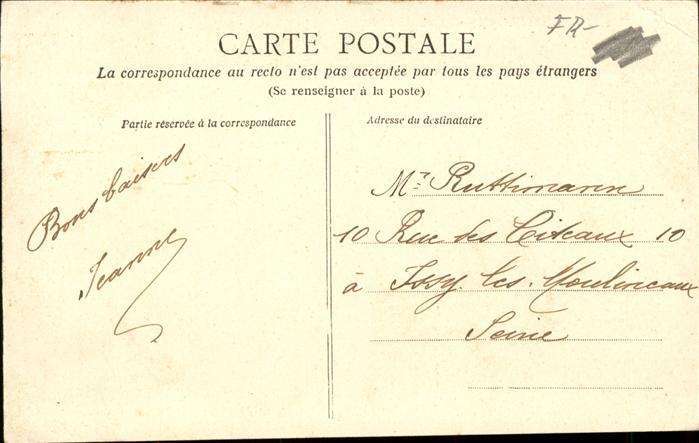 FR-
CARTE POSTALE
La correspondance au recto n'est pas acceptée par tous les pays étrangers
(Se renseigner à la poste)
Partie réservée à la correspondance
Bons baisers
Jeanne
Adresse du destinataire
Mr Ruttimann
10 Rue des Citeaux 10
à Issy les Moulineaux
Seine